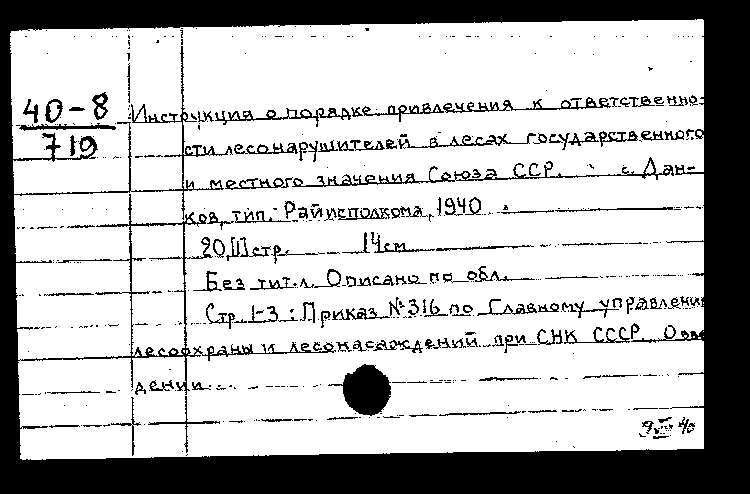 40-8
719
Инструкция о порядке привлечения к ответственно-
сти лесонарушителей в лесах государственного
и местного значения Союза ССР. с. Дан-
ков, тип. Райисполкома, 1940.
20, [1] стр. 14 см
Без тит. л. Описано по обл.
Стр. 1-3: Приказ № 316 по Главному управлению
лесоохраны и лесонасаждений при СНК СССР. О вве
дении...
40